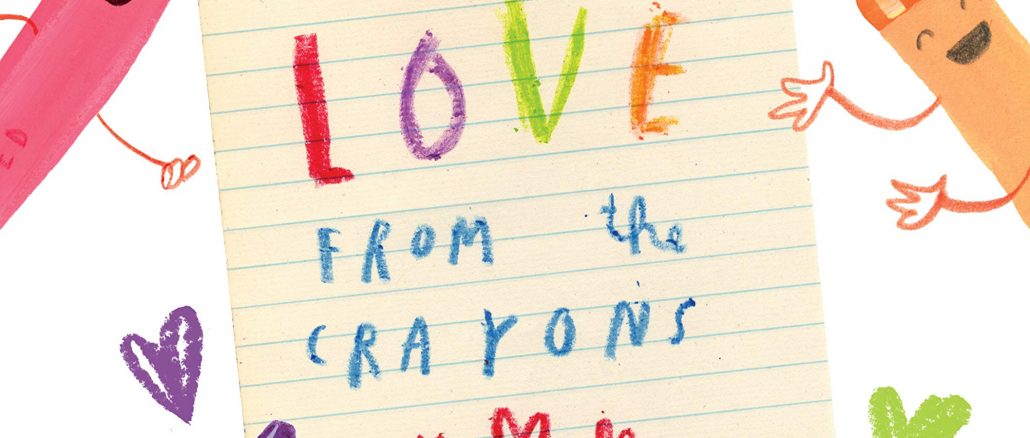 LOVE
FROM the
CRAYONS